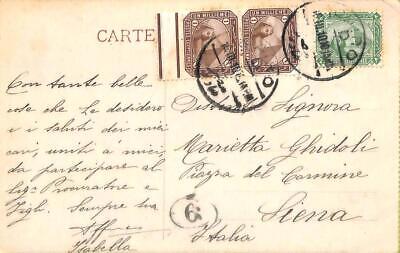 CARTE
UN MILLIEME
UN MILLIEME
Con tante belle
cose che Le desidero
e i saluti dei miei
cari, uniti a' miei,
da partecipare al
Sig. Procuratore e
Figli. Sempre sua
Aff.
Isabella
Distinta Signora
Marietta Ghidoli
Piazza del Carmine
Siena
Italia
6